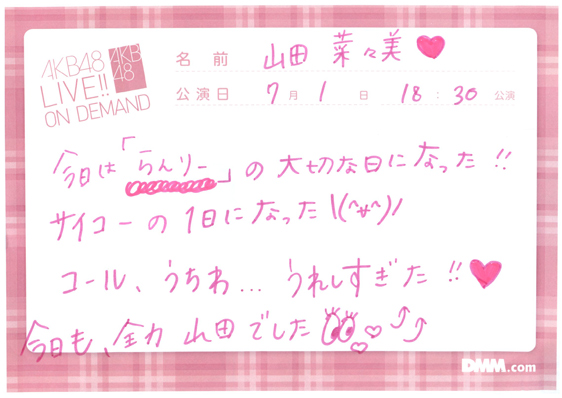 AKB48
LIVE!!
ON DEMAND
AKB
48
名前 山田 菜々美
公演日 7月1日 18:30公演
今日は「らんりー」の大切な日になった!!
サイコーの1日になった\(^^)/
コール、うちわ...うれしすぎた!!
今日も、全力山田でした
DMM.com